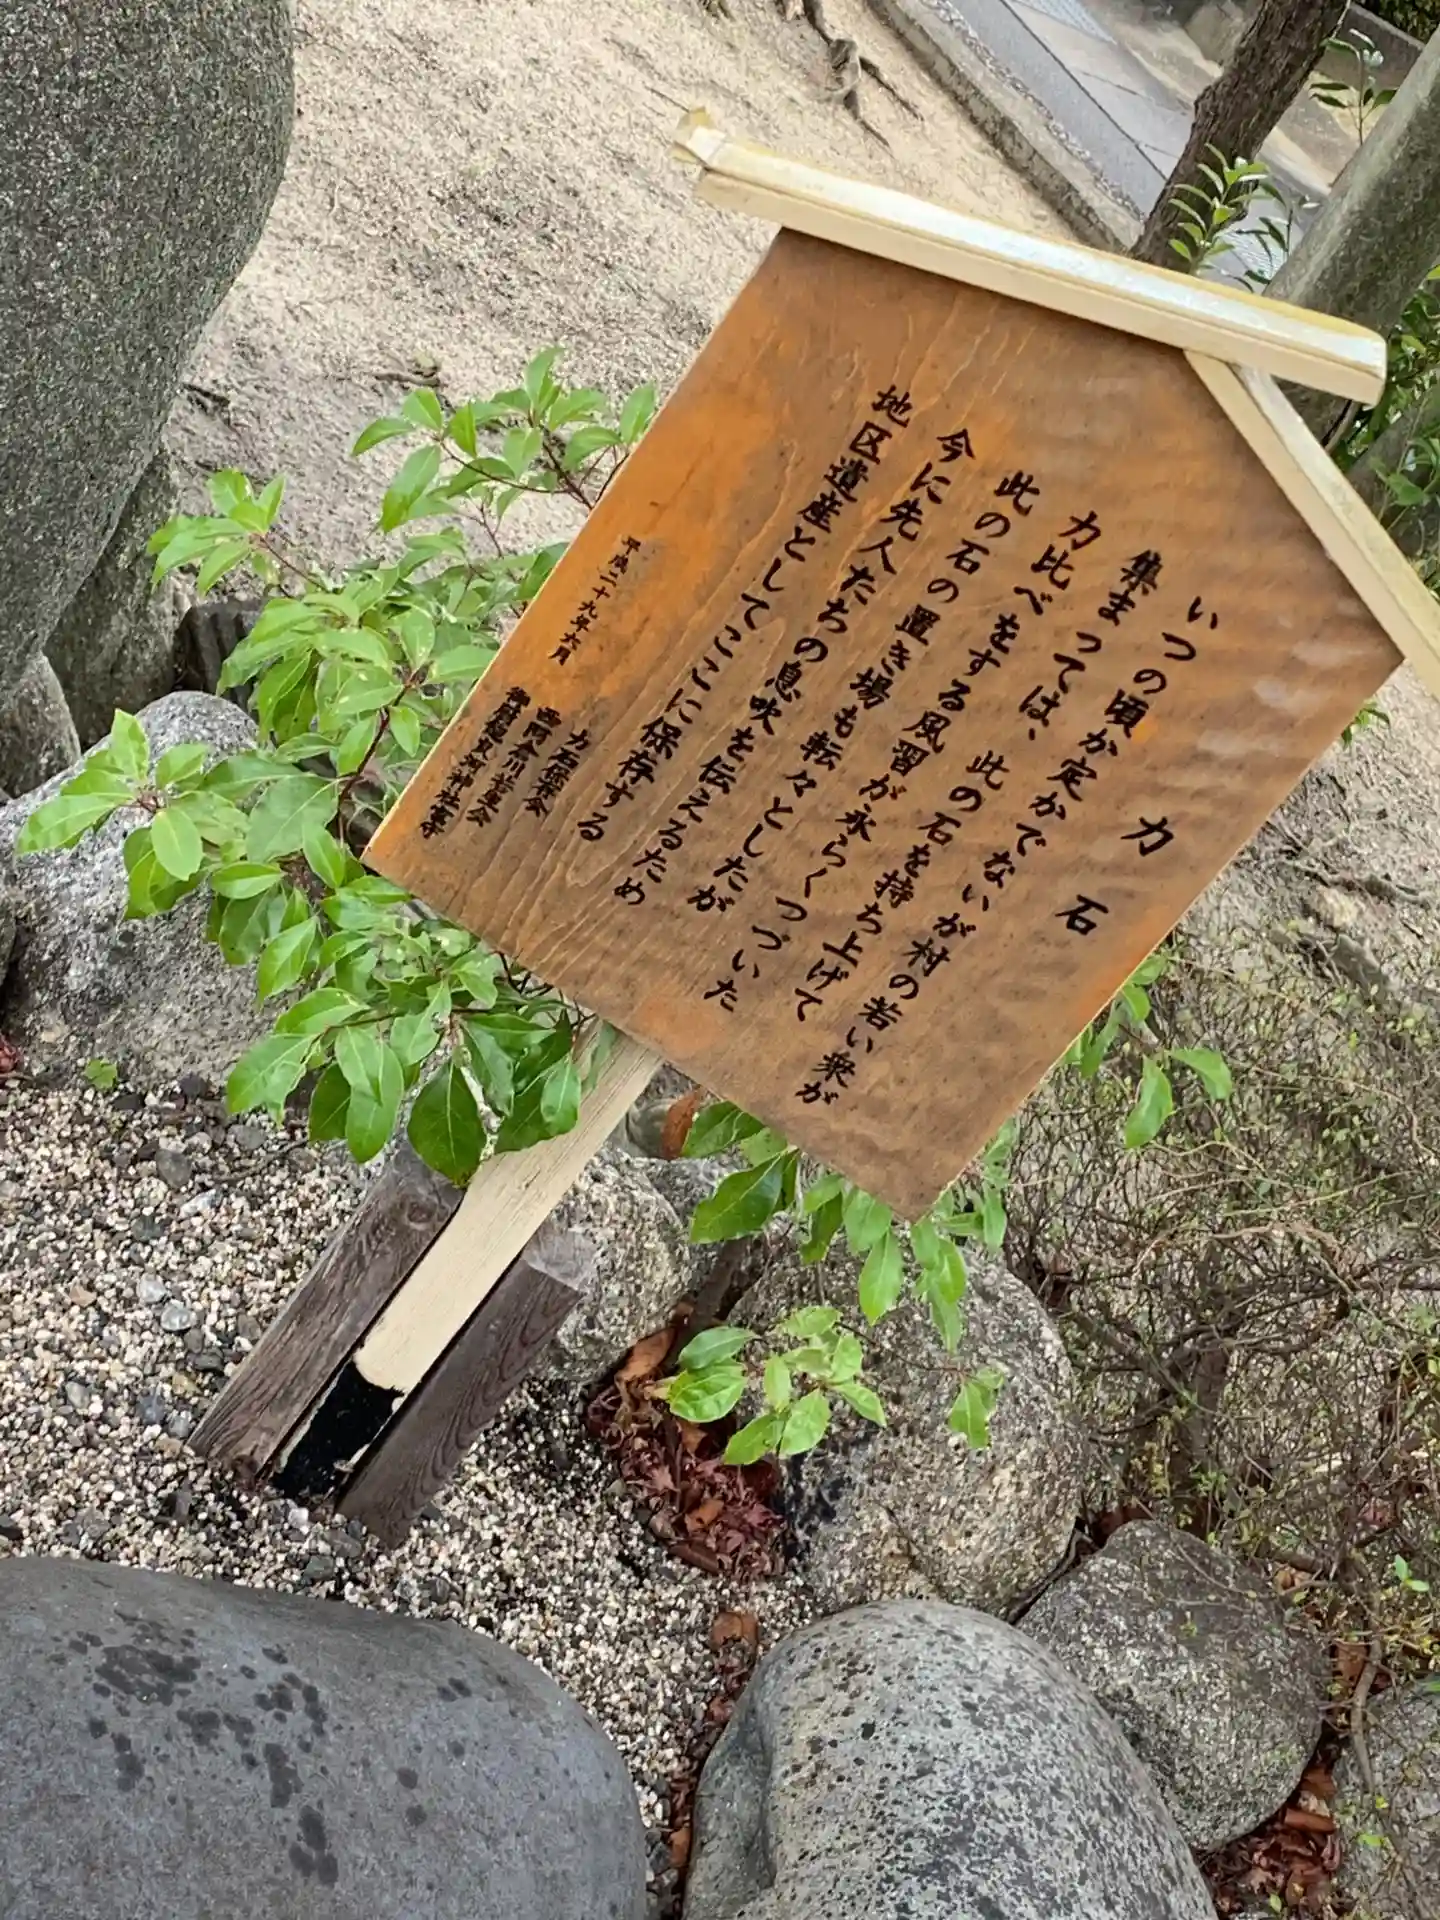 力石
いつの頃か定かでないが村の若い衆が
集まっては、此の石を持ち上げて
力比べをする風習が永らくつづいた
此の石の置き場も転々としたが
今に先人たちの息吹を伝えるため
地区遺産としてここに保存する
平成二十九年六月
力石保存会
西阿倉川
神社